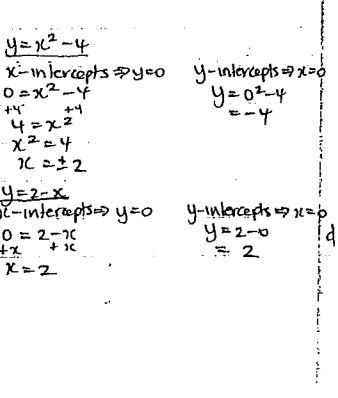 y=x²-4
x-intercepts ⇒ y=0
0=x²-4
+4 +4
4=x²
x²=4
x=±2
y-intercepts ⇒ x=0
y=0²-4
=-4
y=2-x
x-intercepts ⇒ y=0
0=2-x
+x +x
x=2
y-intercepts ⇒ x=0
y=2-0
=2
d